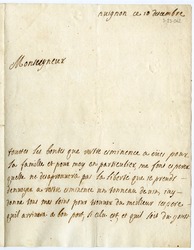 avignon ce 10 decembre
Monseigneur
touttes les bontés que votre eminence a eües pour
la famille et pour moy en particulier me font esperer
quelle ne desaprouvera pas la liberté que je prends
denvoyer a votre eminence un tonneau de vin, jay
donné tous mes soins pour
quil arrivera a bon port, si cela est et quil soit du gout